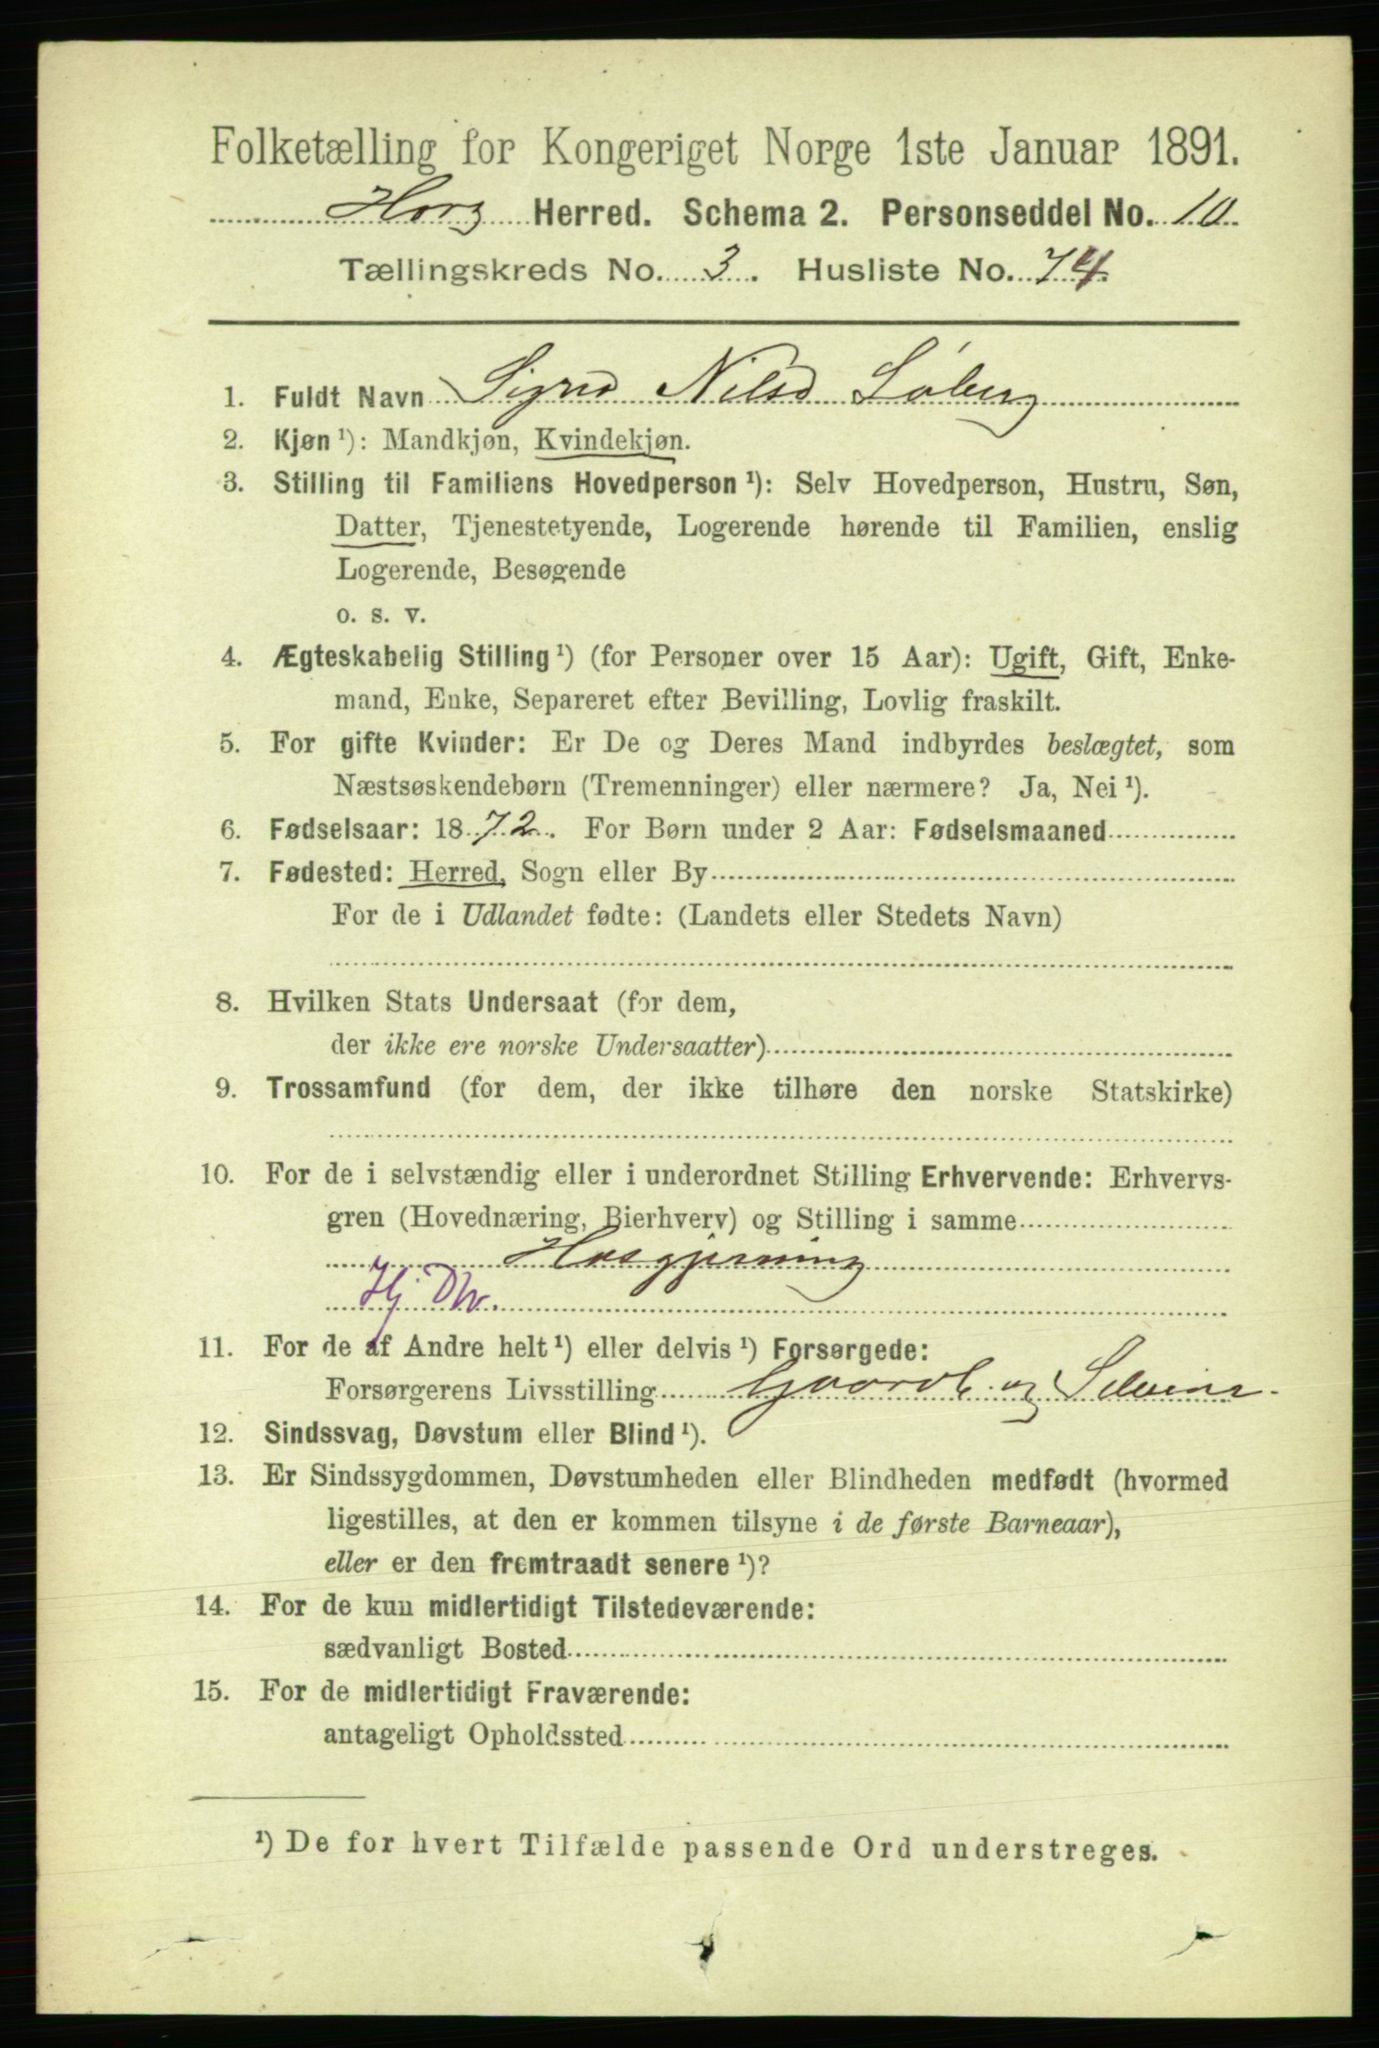 Folketælling for Kongeriget Norge 1ste Januar 1891.
Horg Herred. Schema 2. Personseddel No. 10
Tællingskreds No. 3. Husliste No. 74.
1. Fuldt Navn Sigrid Nilsd Søberg
2. Kjøn ¹): Mandkjøn, Kvindekjøn.
3. Stilling til Familiens Hovedperson ¹): Selv Hovedperson, Hustru, Søn,
Datter, Tjenestetyende, Logerende hørende til Familien, enslig
Logerende, Besøgende
o. s. v.
4. Ægteskabelig Stilling ¹) (for Personer over 15 Aar): Ugift, Gift, Enke-
mand, Enke, Separeret efter Bevilling, Lovlig fraskilt.
5. For gifte Kvinder: Er De og Deres Mand indbyrdes beslægtet, som
Næstsøskendebørn (Tremenninger) eller nærmere? Ja, Nei ¹).
6. Fødselsaar: 1872. For Børn under 2 Aar: Fødselsmaaned
7. Fødested: Herred, Sogn eller By
For de i Udlandet fødte: (Landets eller Stedets Navn)
8. Hvilken Stats Undersaat (for dem,
der ikke ere norske Undersaatter)
9. Trossamfund (for dem, der ikke tilhøre den norske Statskirke)
10. For de i selvstændig eller i underordnet Stilling Erhvervende: Erhvervs-
gren (Hovednæring, Bierhverv) og Stilling i samme
Husgjerning
Hj Dtr.
11. For de af Andre helt ¹) eller delvis ¹) Forsørgede:
Forsørgerens Livsstilling Gaardb. og Selveier
12. Sindssvag, Døvstum eller Blind ¹).
13. Er Sindssygdommen, Døvstumheden eller Blindheden medfødt (hvormed
ligestilles, at den er kommen tilsyne i de første Barneaar),
eller er den fremtraadt senere ¹)?
14. For de kun midlertidigt Tilstedeværende:
sædvanligt Bosted
15. For de midlertidigt Fraværende:
antageligt Opholdssted
¹) De for hvert Tilfælde passende Ord understreges.